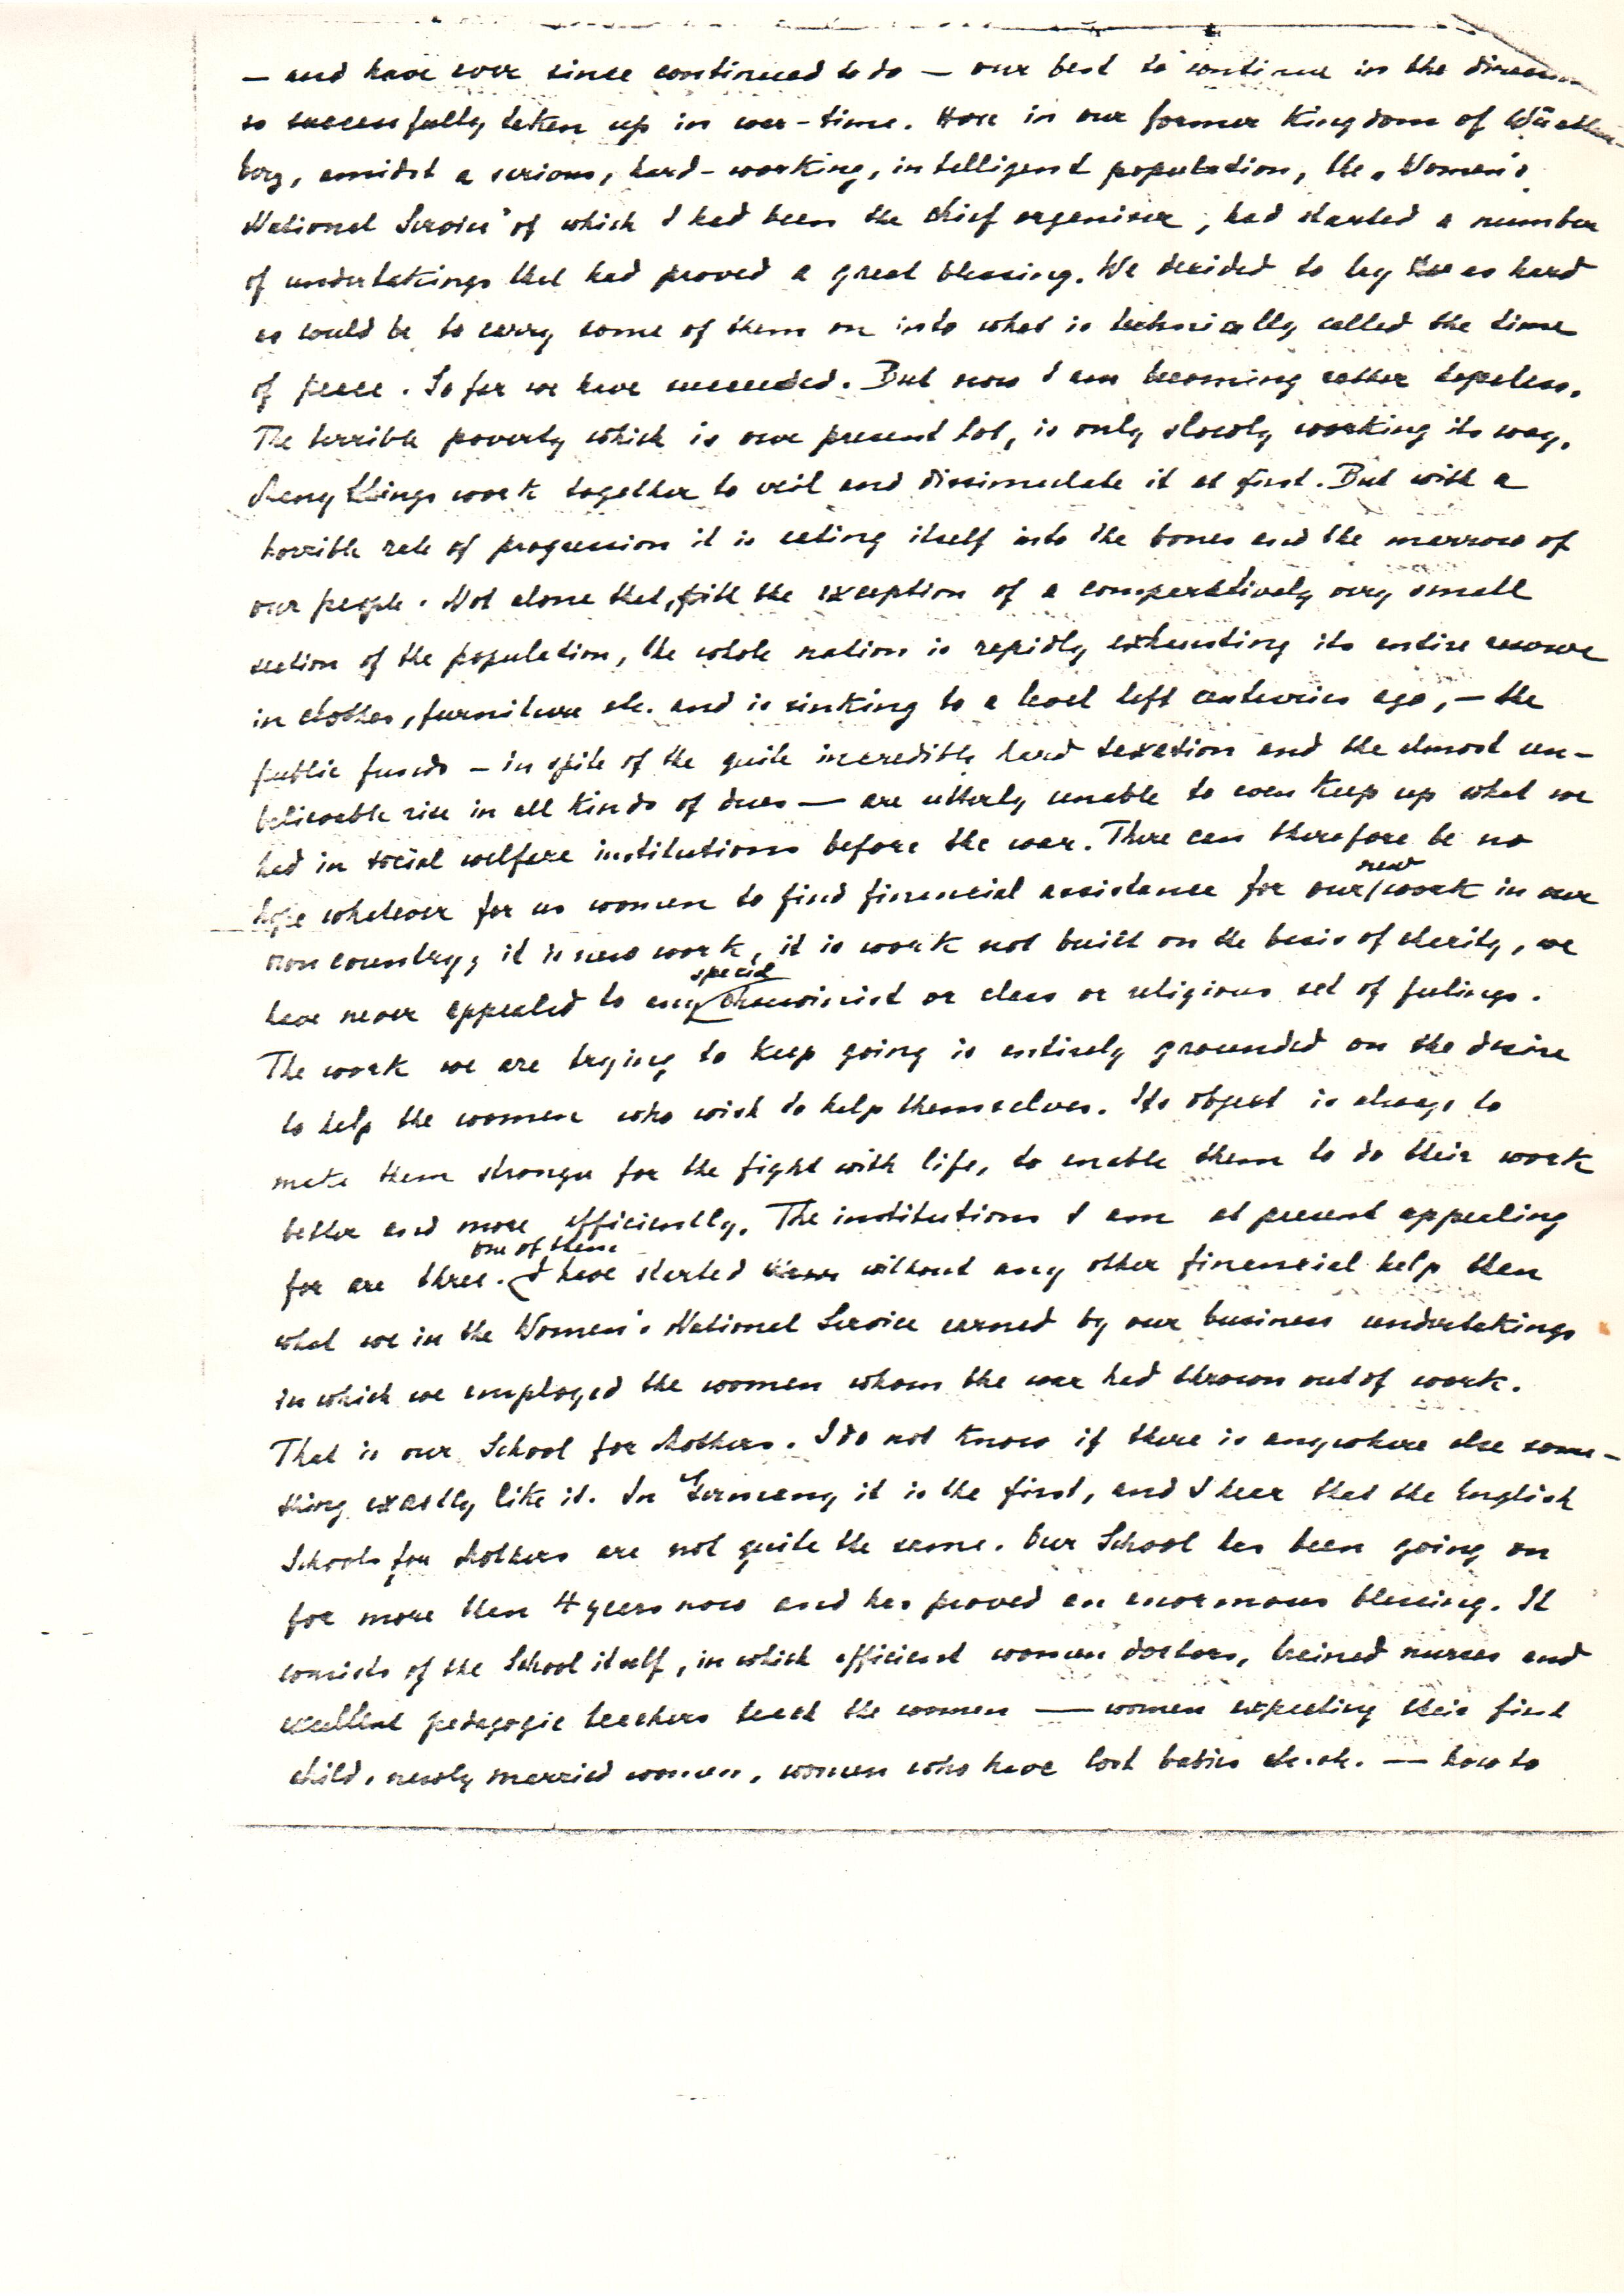 — and have ever since continued to do — our best to continue in the direction
so successfully taken up in war-time. Here in our former Kingdom of Württem-
berg, amidst a serious, hard-working, intelligent population, the „Women's
National Service" of which I had been the chief organiser, had started a number
of undertakings that had proved a great blessing. We decided to try as hard
as could be to carry some of them on into what is technically called the time
of peace. So far we have succeeded. But now I am becoming rather hopeless.
The terrible poverty which is our present lot, is only slowly working its way.
Many things work together to veil and dissimulate it at first. But with a
horrible rate of progression it is eating itself into the bones and the marrow of
our people. Not alone that, with the exception of a comparatively very small
section of the population, the whole nation is rapidly exhausting its entire reserve
in clothes, furniture etc. and is sinking to a level left centuries ago, — the
public funds — in spite of the quite incredibly hard taxation and the almost un-
believable rise in all kinds of dues — are utterly unable to even keep up what we
had in social welfare institutions before the war. There can therefore be no
hope whatever for us women to find financial assistance for our new work in our
own country; it is new work, it is work not built on the basis of charity, we
have never appealed to any special chauvinist or class or religious set of feelings.
The work we are trying to keep going is entirely grounded on the desire
to help the women who wish to help themselves. Its object is always to
make them stronger for the fight with life, to enable them to do their work
better and more efficiently. The institutions I am at present appealing
for are three. one of them I have started without any other financial help than
what we in the Women's National Service earned by our business undertakings
in which we employed the women whom the war had thrown out of work.
That is our School for Mothers. I do not know if there is anywhere else some-
thing exactly like it. In Germany it is the first, and I hear that the English
Schools for Mothers are not quite the same. Our School has been going on
for more than 4 years now and has proved an enormous blessing. It
consists of the School itself, in which efficient women doctors, trained nurses and
excellent pedagogic teachers teach the women — women expecting their first
child, newly married women, women who have lost babies etc. etc. — how to